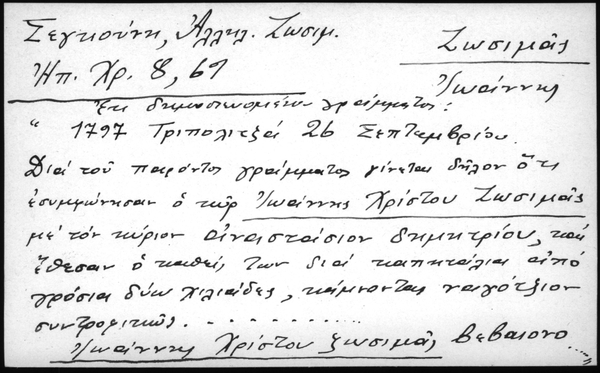 Σεγκούνη, Ἀλληλ. Ζωσιμ.
Ζωσιμᾶς
Ἠπ. Χρ. 8, 61
Ἰωάννης
Ἐκ δημοσιευομένου γράμματος:
“ 1797 Τριπολιτζά 26 Σεπτεμβρίου.
Διά τοῦ παρόντος γράμματος γίνεται δῆλον ὅτι
ἐσυμφώνησαν ὁ κύρ Ἰωάννης Χρίστου Ζωσιμᾶς
μέ τόν κύριον ἀναστάσιον δημητρίου, καί
ἔθεσαν ὁ καθείς των διά καπητάλια ἀπό
γρόσια δύω χιλιάδες, κάμνοντας
συντροφικῶς. . . . . . . . .
Ἰωάννης Χρίστου ζωσιμᾶς βεβαιονο .....